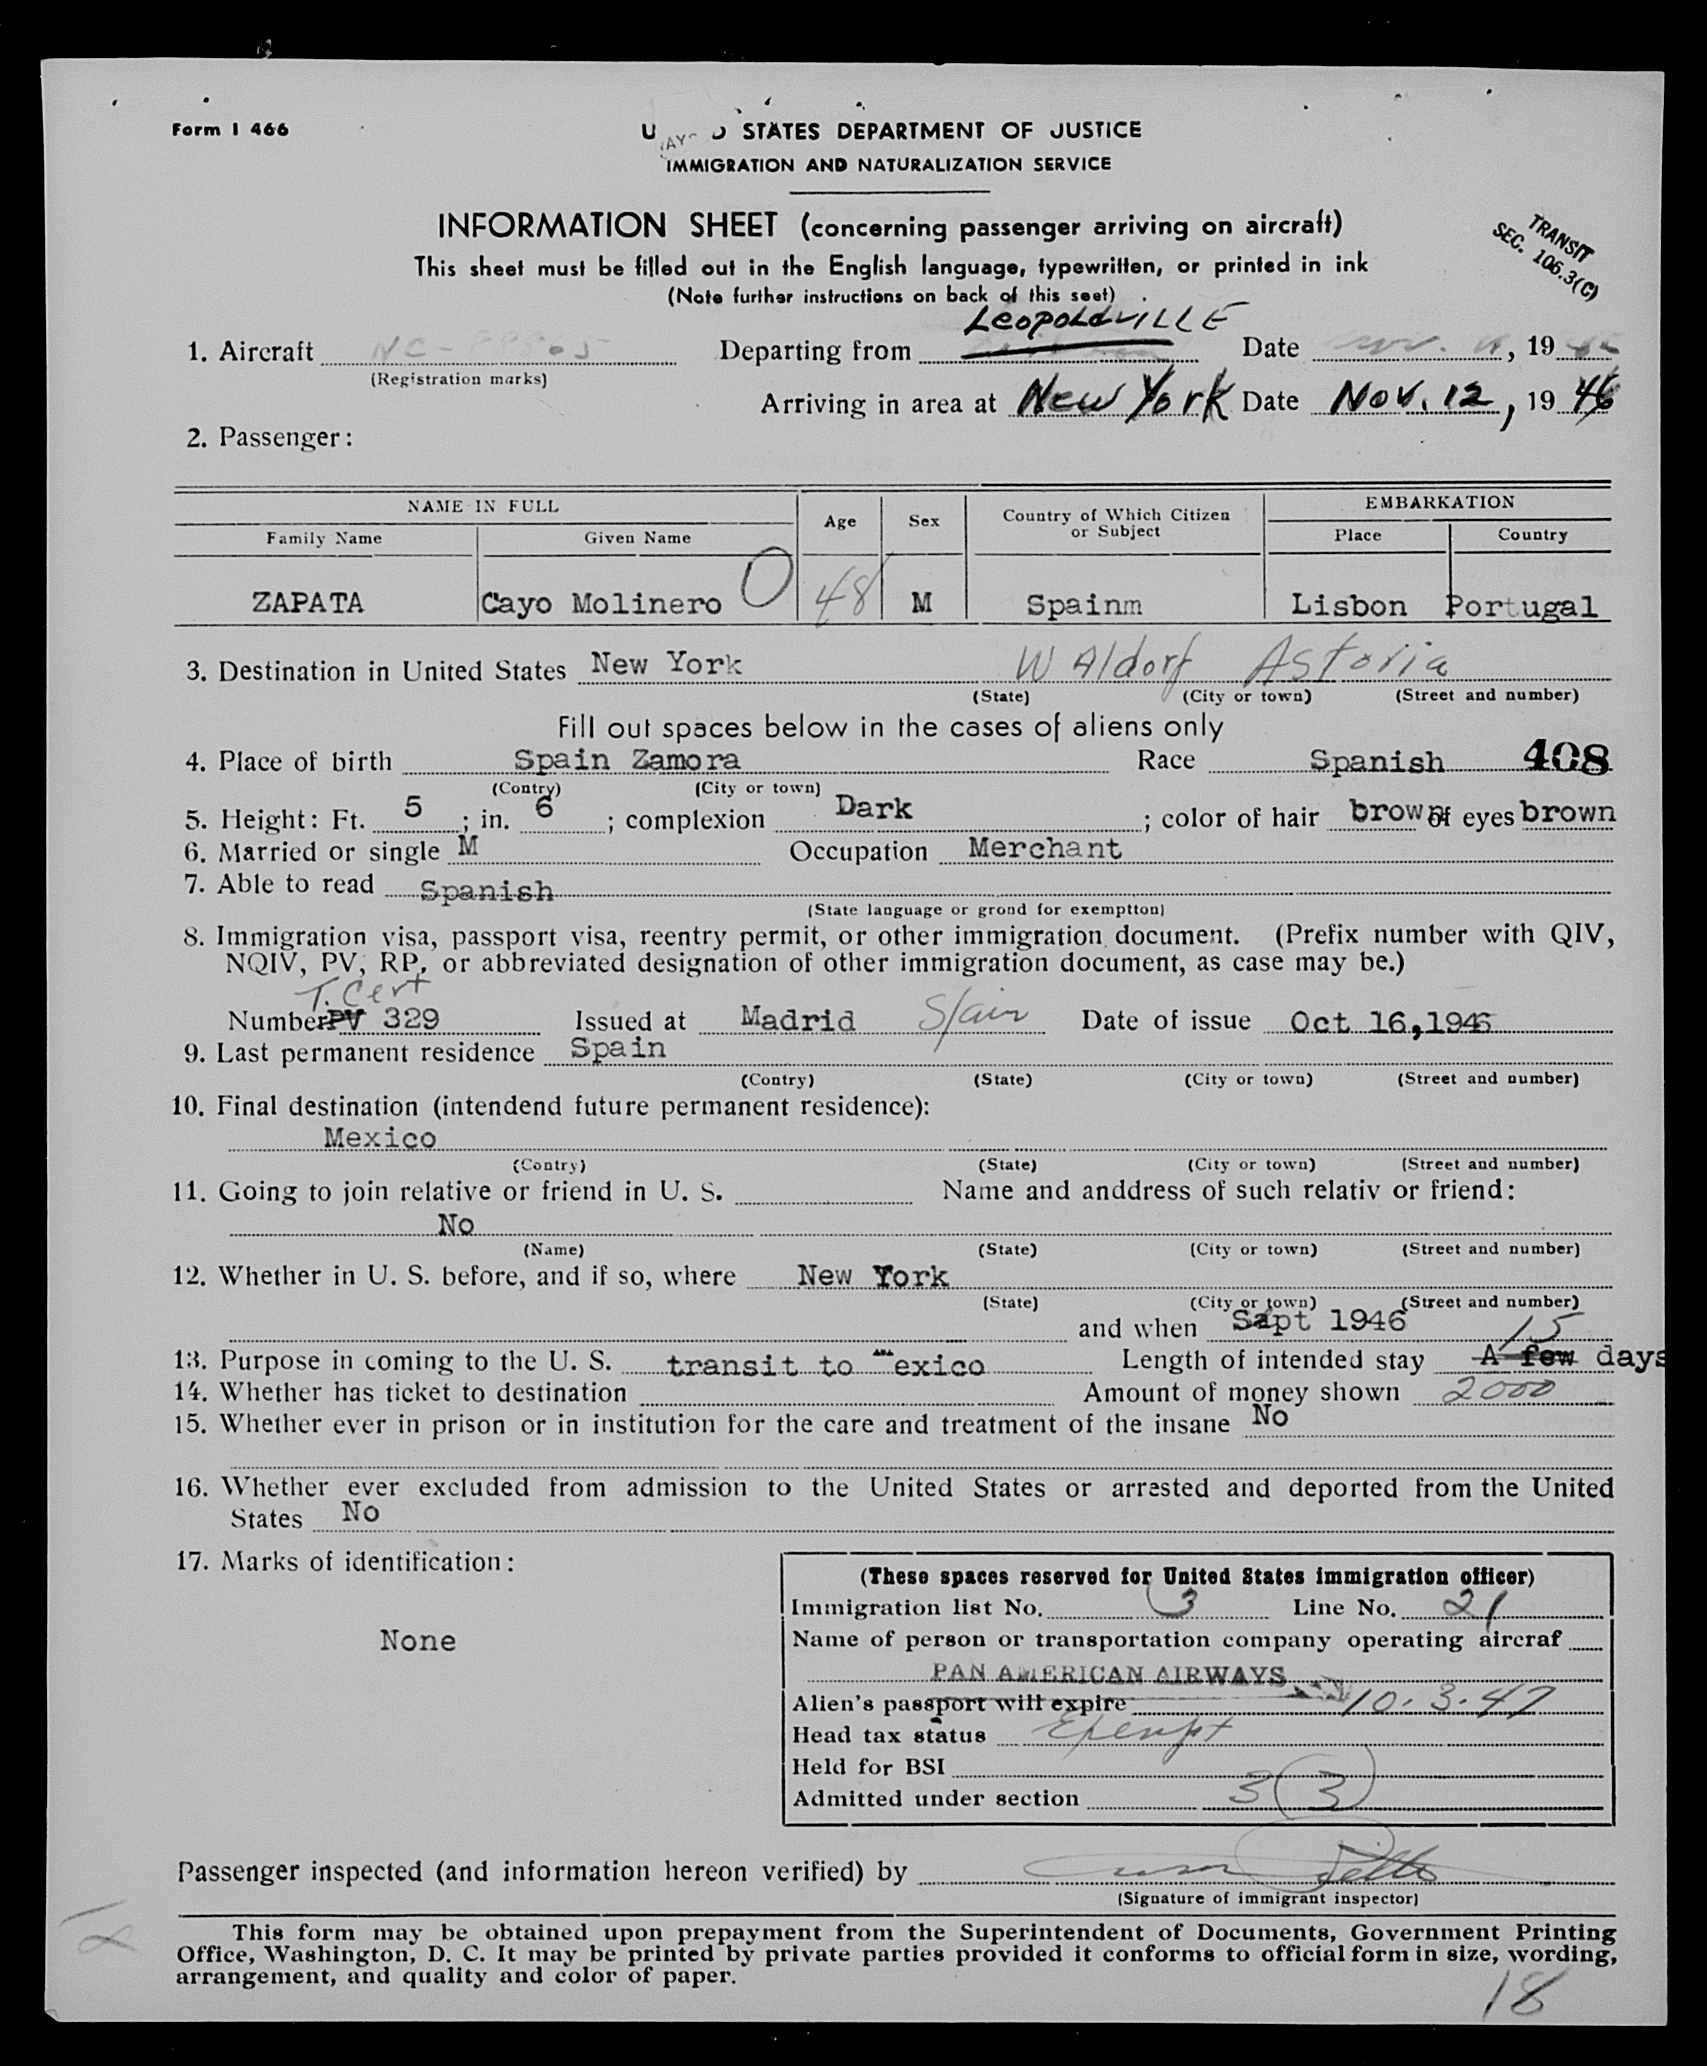 Form I 466
STATES DEPARTMENT OF JUSTICE
IMMIGRATION AND NATURALIZATION SERVICE
INFORMATION SHEET (concerning passenger arriving on aircraft)
TRANSIT
SEC. 106.3(C)
This sheet must be filled out in the English language, typewritten, or printed in ink
(Note further instructions on back of this seet)
LEOPOLdVILLE
1. Aircraft Departing from Date , 19
(Registration marks)
Arriving in area at New York Date Nov. 12, 1946
2. Passenger:
NAME IN FULL Age Sex Country of Which Citizen or Subject EMBARKATION
Family Name Given Name Place Country
ZAPATA Cayo Molinero 48 M Spainm Lisbon Portugal
3. Destination in United States New York Waldorf Astoria
(State) (City or town) (Street and number)
Fill out spaces below in the cases of aliens only
4. Place of birth Spain Zamora Race Spanish 408
(Contry) (City or town)
5. Height: Ft. 5; in. 6; complexion Dark; color of hair brown of eyes brown
6. Married or single M Occupation Merchant
7. Able to read Spanish
(State language or grond for exemptton)
8. Immigration visa, passport visa, reentry permit, or other immigration document. (Prefix number with QIV,
NQIV, PV, RP, or abbreviated designation of other immigration document, as case may be.)
T. Cert
Number PV 329 Issued at Madrid Spain Date of issue Oct 16,1946
9. Last permanent residence Spain
(Contry) (State) (City or town) (Street and number)
10. Final destination (intendend future permanent residence):
Mexico
(Contry) (State) (City or town) (Street and number)
11. Going to join relative or friend in U. S. Name and anddress of such relativ or friend:
No
(Name) (State) (City or town) (Street and number)
12. Whether in U. S. before, and if so, where New York
(State) (City or town) (Street and number)
and when Sapt 1946
13. Purpose in coming to the U. S. transit to Mexico Length of intended stay A few 15 days
14. Whether has ticket to destination Amount of money shown 2000
15. Whether ever in prison or in institution for the care and treatment of the insane No
16. Whether ever excluded from admission to the United States or arrested and deported from the United
States No
17. Marks of identification:
None
(These spaces reserved for United States immigration officer)
Immigration list No. 3 Line No. 21
Name of person or transportation company operating aircraf
PAN AMERICAN AIRWAYS
Alien's passport will expire 10.3.47
Head tax status Exempt
Held for BSI
Admitted under section 3(3)
Passenger inspected (and information hereon verified) by
(Signature of immigrant inspector)
This form may be obtained upon prepayment from the Superintendent of Documents, Government Printing
Office, Washington, D. C. It may be printed by private parties provided it conforms to official form in size, wording,
arrangement, and quality and color of paper.
18